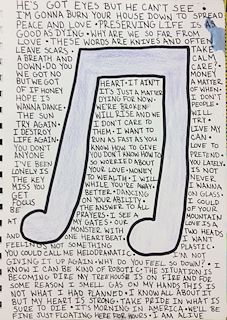 HE'S GOT EYES BUT HE CAN'T SEE •
I'M GONNA BURN YOUR HOUSE DOWN TO SPREAD
PEACE AND LOVE • PRESERVING LIFE IS AS
GOOD AS DYING • WHY ARE WE SO FAR FROM
LOVE • THESE WORDS ARE KNIVES AND OFTEN
LEAVE SCARS • TAKE
A BREATH AND CALM
DOWN • DO YOU CARE!
WE GOT NO MONEY
BUT WE GOT HEART • IT AIN'T A MATTER
OF IF HONEY IT'S JUST A MATTER OF WHEN •
HOPE DYING FOR NOW • I DON'T
WANNA DANCE • WE'RE BROKEN PEOPLE
THE SUN WILL RISE AND WE WILL
TRY AGAIN • I DON'T CARE TO TRY •
I DESTROY THEM • I WANT TO LIVE MY
LIFE AGAIN RUN AS FAST AS YOU CAN •
YOU DON'T KNOW HOW TO GIVE LOVE
ANYONE YOU DON'T KNOW HOW TO
I'VE BEEN SO WORRIED ABOUT PRETEND
LONELY YOUR LOVE • MONEY YOU LATELY
IS THE TO WEALTH • I WILL IS NOT
KEY WHILE YOU'RE AWAY NEVER
MISS YOU BETTER • DANCING I WANNA
GET ON YOUR ABILITY • ON GLASS
FOCUS THE ANSWER TO ALL I COULD
BE PRAYERS • I SEE A OF YOUR
AT MY GATES • OUR MOUNTAIN
MONSTER WITH LOVE IS A
AND ONE HEARTBEAT TWO HEADS
FEELING'S NOT SOMETHING I WANT
YOU COULD CALL ME MELODRAMATIC PLASTIC •
GIVING IT UP AGAIN • WHY DO YOU FEEL SO DOWN? • I'M NOT
KNOW I CAN BE KIND OF ROBOTIC • THE SITUATION IS
BECOMING DIRE MY TREEHOUSE IS ON FIRE AND FOR
SOME REASON I SMELL GAS ON MY HANDS THIS IS
NOT WHAT I HAD PLANNED • I KNOW ALL ABOUT IT
BUT MY HEART IS STRONG • TAKE PRIDE IN WHAT IS
SURE TO DIE • IT'S MORNING IN AMERICA • WE'LL BE
FINE JUST FLOATING HERE FOR NOW • I AM ALIVE